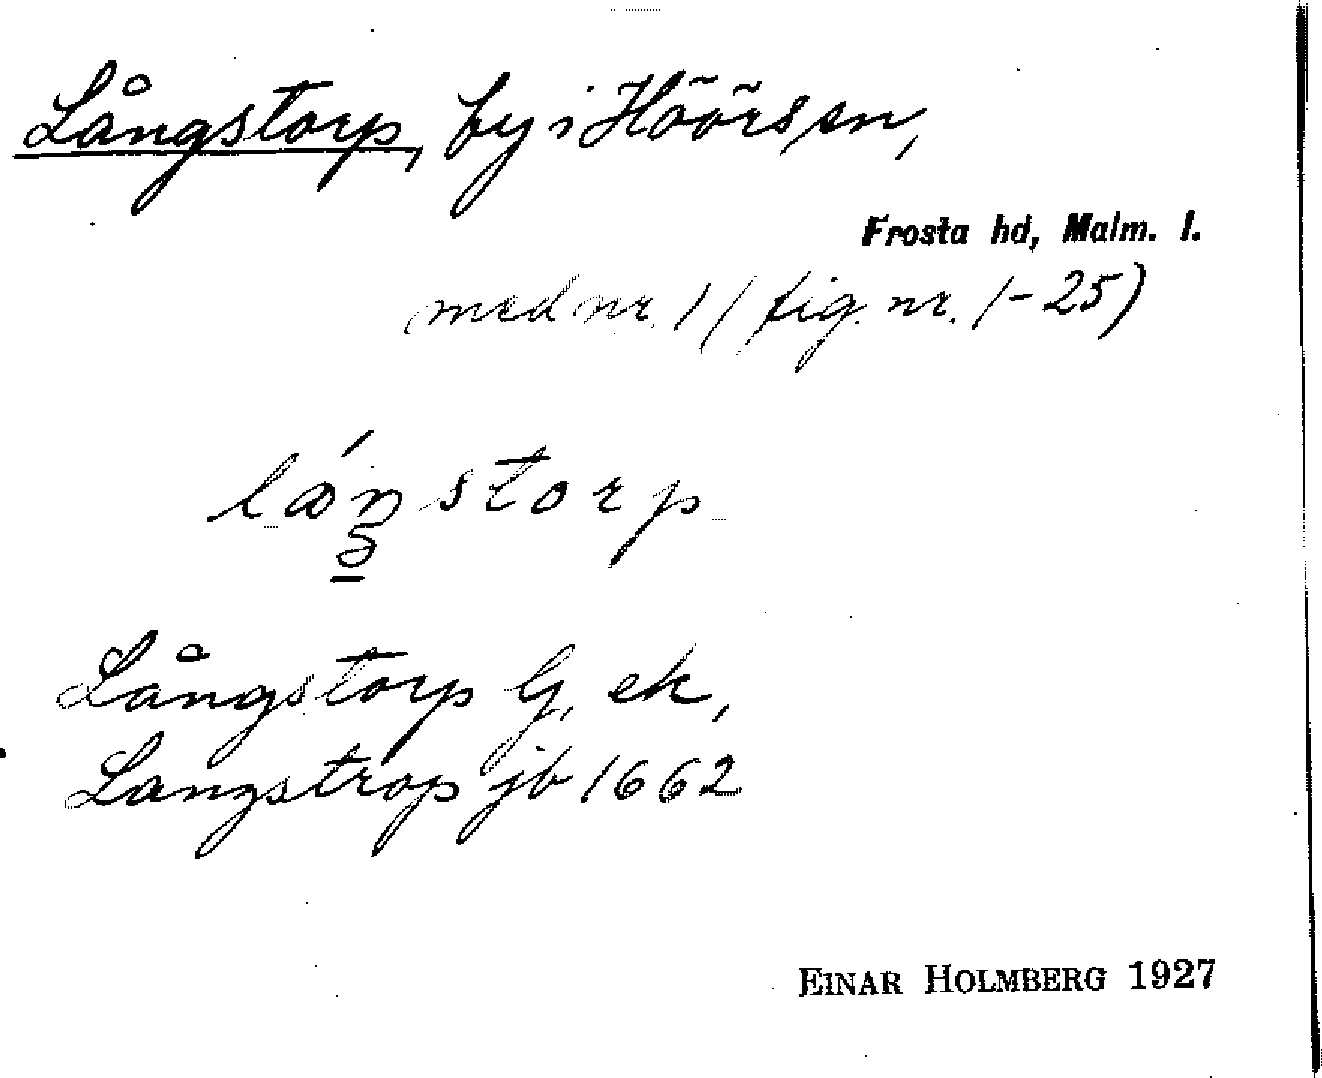 Långstorp, by i Höörs sn,
Frosta hd, Malm. l.
med nr 1 (fig. nr. 1-25)
storp
Långstorp G, ek,
Langstrop jb 1662
EINAR HOLMBERG 1927